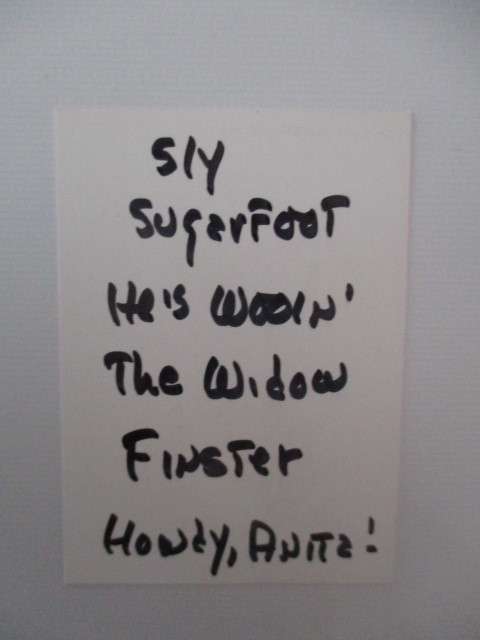 Sly
Sugarfoot
He's Wooin'
The Widow
Finster
Howdy, Anita!